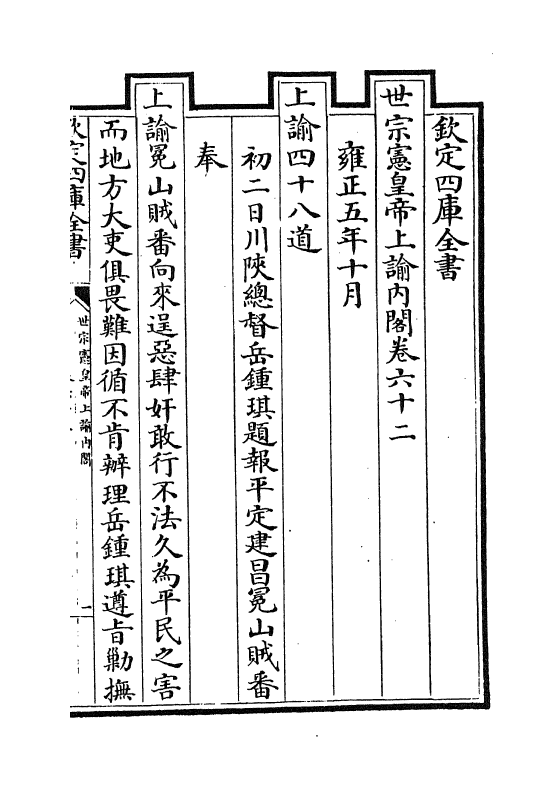 欽定四庫全書
世宗憲皇帝上諭内閣卷六十二
雍正五年十月
上諭四十八道
初二日川陜總督岳鍾琪題報平定建昌冕山賊番
奉
上諭冕山賊番向來逞惡肆奸敢行不法久為平民之害
而地方大吏俱畏難因循不肯辦理岳鍾琪遵旨勦撫
欽定四庫全書
世宗憲皇帝上諭内閣
一